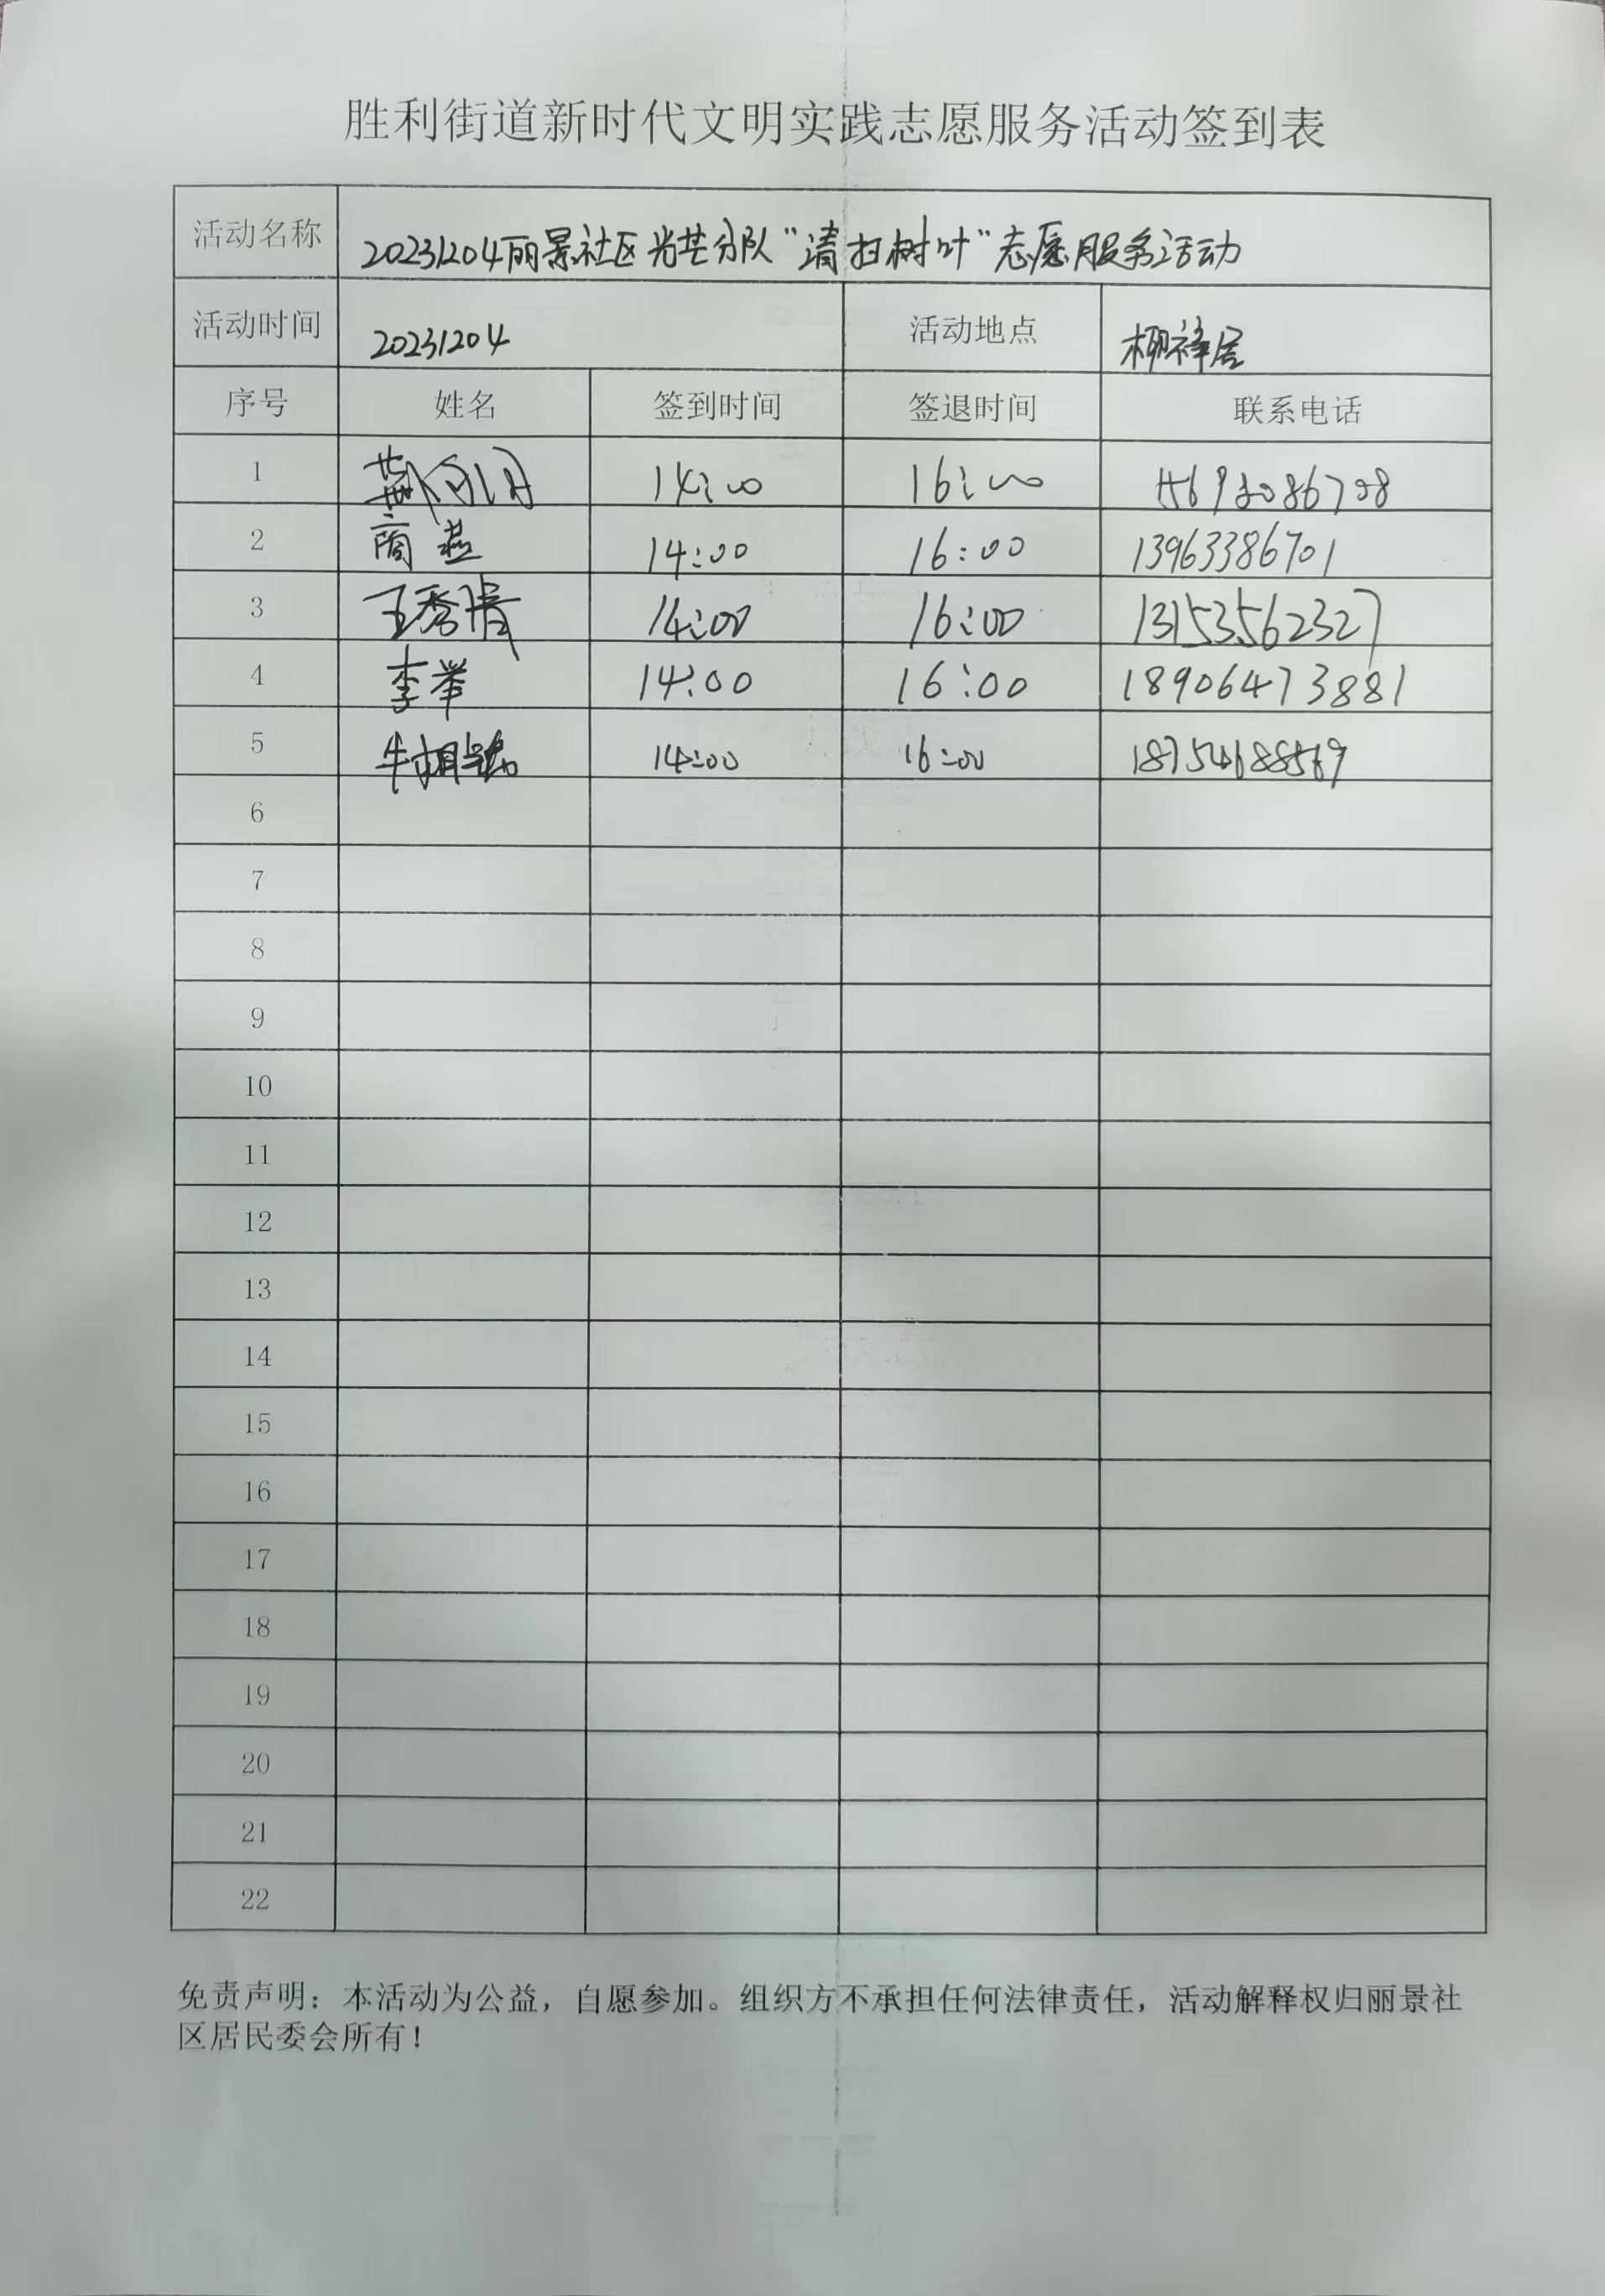 胜利街道新时代文明实践志愿服务活动签到表
活动名称 20231204丽景社区光芒分队“清扫树叶”志愿服务活动
活动时间 20231204 活动地点 柳祥居
序号 姓名 签到时间 签退时间 联系电话
1 14:00 16:00
2 商燕 14:00 16:00 13963386701
3 王秀倩 14:00 16:00 13153562327
4 李举 14:00 16:00 18906473881
5 14:00 16:00
6
7
8
9
10
11
12
13
14
15
16
17
18
19
20
21
22
免责声明：本活动为公益，自愿参加。组织方不承担任何法律责任，活动解释权归丽景社
区居民委会所有！